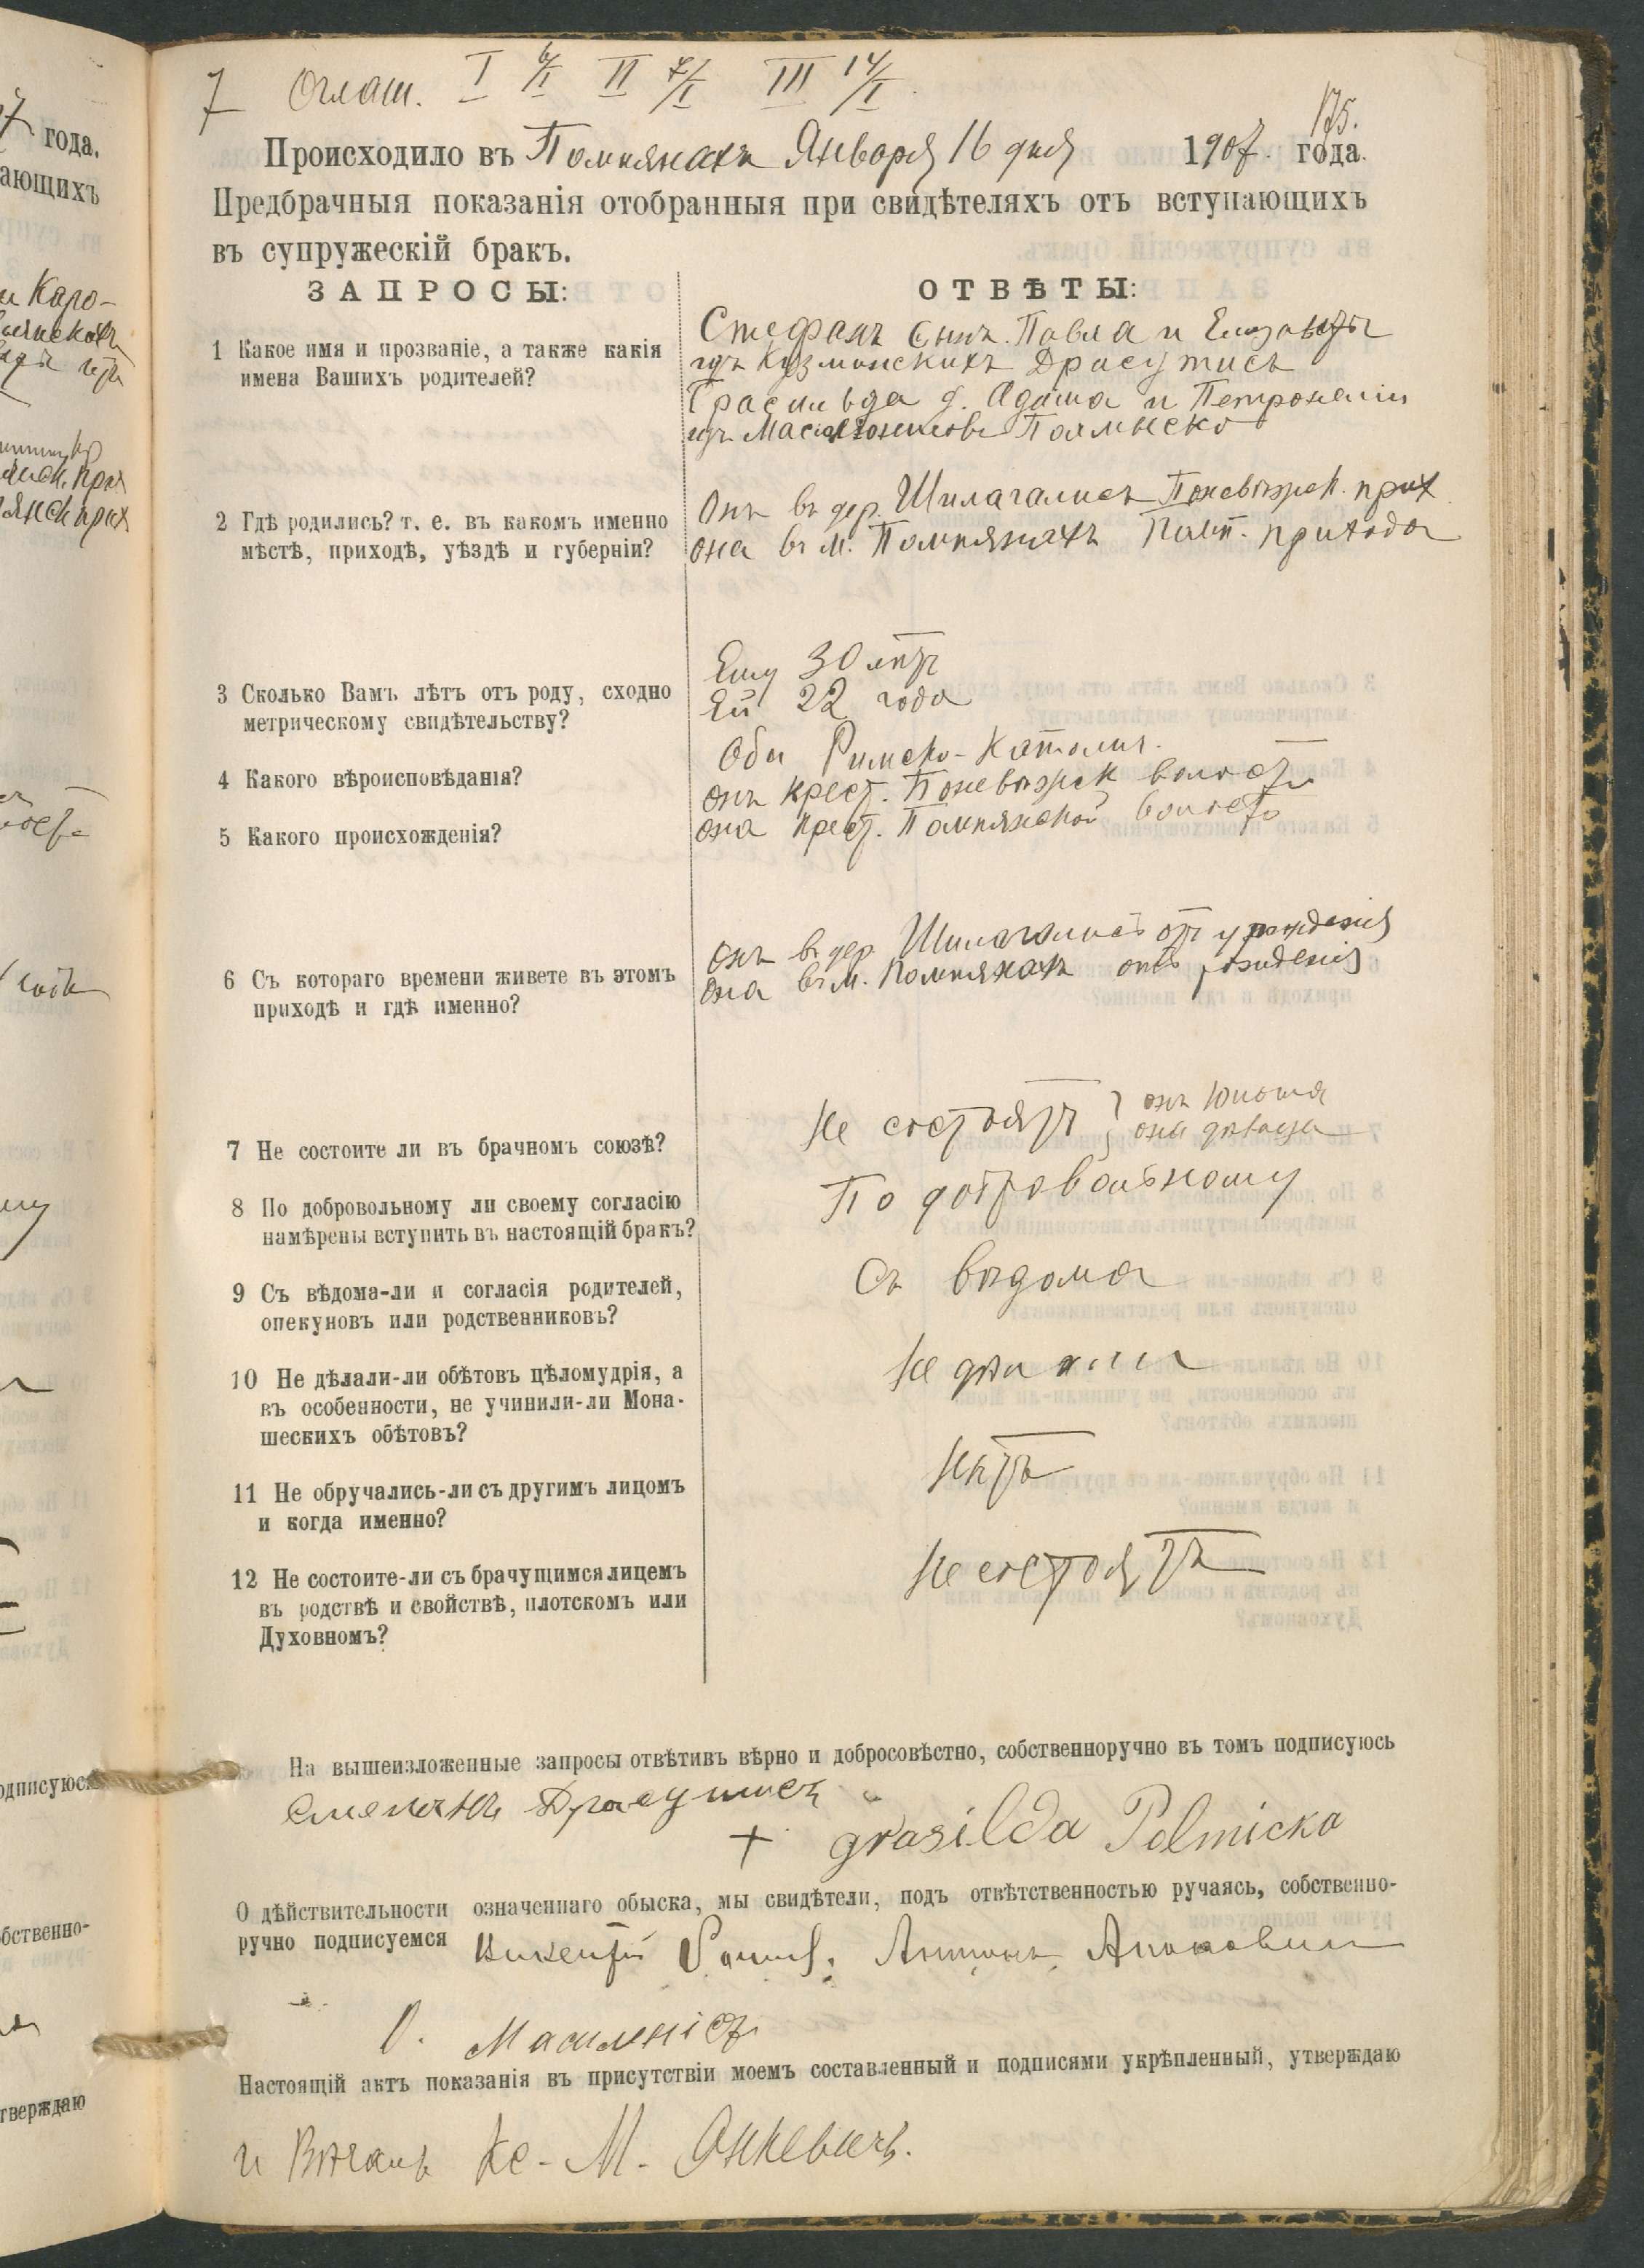 7 Оглаш. I 6/I II 7/I III 14/I
175.
Происходило въ Помпянахъ Января 16 дня 1907. года.
Предбрачныя показанія отобранныя при свидѣтеляхъ отъ вступающихъ
въ супружескій бракъ.
ЗАПРОСЫ:
ОТВѢТЫ:
1 Какое имя и прозваніе, а также какія
имена Вашихъ родителей?
Стефанъ сынъ Павла и Елизаветы
изъ Кузминскихъ Драсутисъ
Грасильда д. Адама и Петронеліи
изъ Полмыско
2 Гдѣ родились? т. е. въ какомъ именно
мѣстѣ, приходѣ, уѣздѣ и губерніи?
Онъ въ дер. Шилагалисъ Поневѣжск. прих
она въ м. Помпянахъ Помп. прихода
3 Сколько Вамъ лѣтъ отъ роду, сходно
метрическому свидѣтельству?
Ему 30 лѣтъ
Ей 22 года
4 Какого вѣроисповѣданія?
Оба Римско-Католич.
5 Какого происхожденія?
онъ крест. Поневѣжск волости
она крест. Помпянской волости
6 Съ котораго времени живете въ этомъ
приходѣ и гдѣ именно?
онъ въ дер. Шилагалисъ отъ рожденія
она въ м. Помпянахъ отъ рожденія
7 Не состоите ли въ брачномъ союзѣ?
Не состоятъ } онъ юноша
она дѣвица
8 По добровольному ли своему согласію
намѣрены вступить въ настоящій бракъ?
По добровольному
9 Съ вѣдома-ли и согласія родителей,
опекуновъ или родственниковъ?
Съ вѣдома
10 Не дѣлали-ли обѣтовъ цѣломудрія, а
въ особенности, не учинили-ли Мона-
шескихъ обѣтовъ?
Не дѣлали
11 Не обручались-ли съ другимъ лицомъ
и когда именно?
Нѣтъ
12 Не состоите-ли съ брачущимся лицемъ
въ родствѣ и свойствѣ, плотскомъ или
Духовномъ?
Не состоятъ
На вышеизложенные запросы отвѣтивъ вѣрно и добросовѣстно, собственноручно въ томъ подписуюсь
Драсутисъ
+ Grasilda Polmicka
О дѣйствительности означеннаго обыска, мы свидѣтели, подъ отвѣтственностью ручаясь, собственно-
ручно подписуемся Антонъ
Настоящій актъ показанія въ присутствіи моемъ составленный и подписями укрѣпленный, утверждаю
и Вѣнчалъ Кс. М.